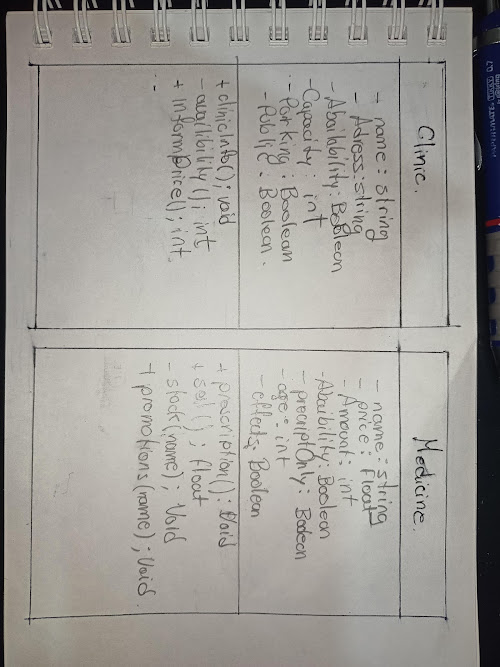 Clinic.
+ name: string
- Adress: string
- Abailability: Boolean
- Capacity: int
- Parking: Boolean
- Public: Boolean.
+ clinicInfo(); void
- availibility(); int
+ InformPrice(); int.
Medicine.
- name: string
- price: Float
- Amount: int
- Abaibility: Boolean
- precriptOnly: Boolean
- age: int
- effects: Boolean
+ prescription(): Void
+ Sell(); float
- stock(name); Void
+ promotions(name); Void.